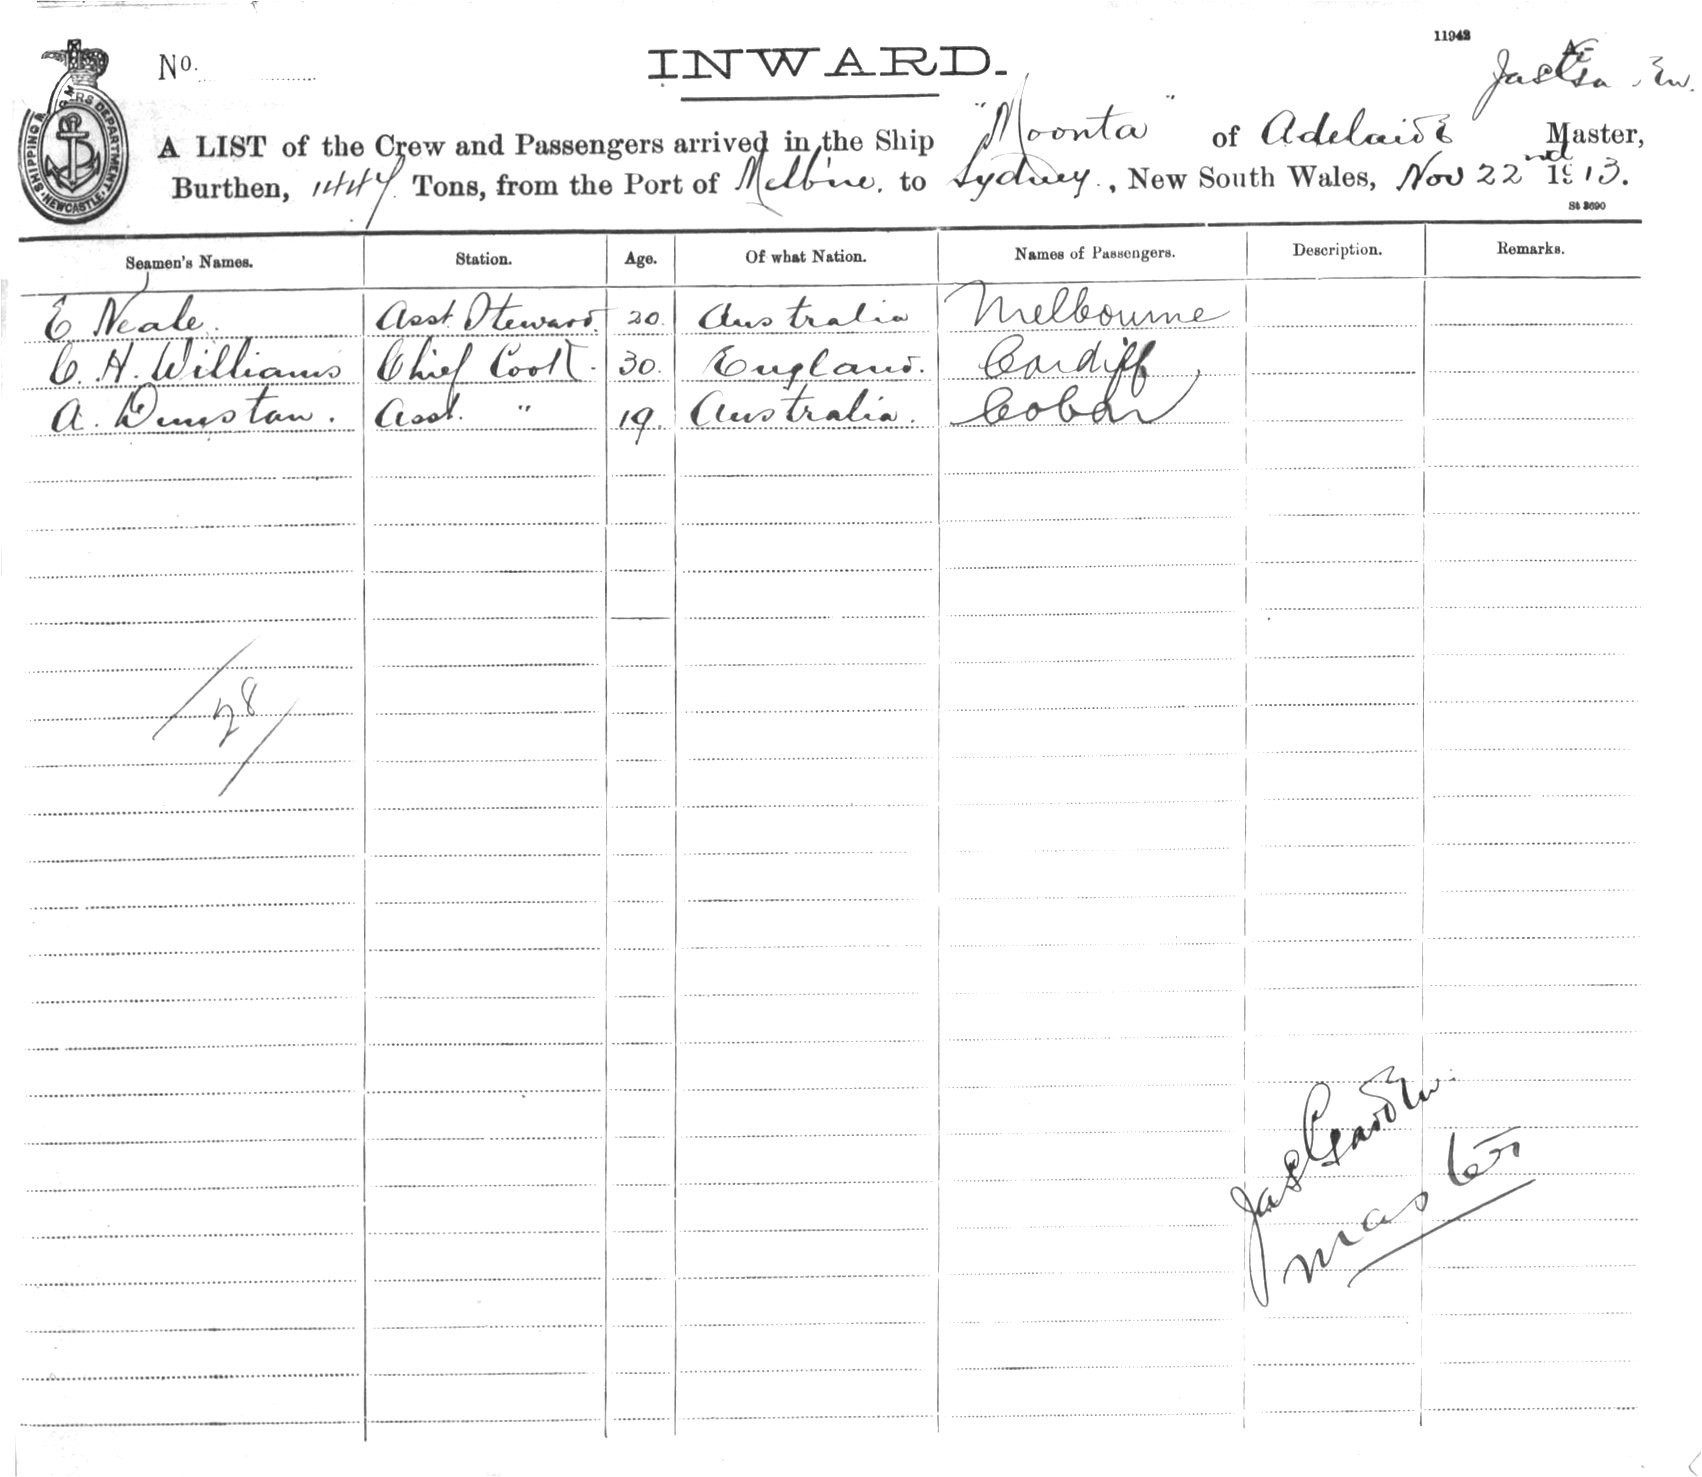 11942
A-
No.
INWARD.
A LIST of the Crew and Passengers arrived in the Ship "Moonta" of Adelaide Master,
Burthen, 1447 Tons, from the Port of Melb'ne. to Sydney, New South Wales, Nov 22nd 1913.
St 3690
SHIPPING DEPARTMENT NEWCASTLE
Seamen's Names. Station. Age. Of what Nation. Names of Passengers. Description. Remarks.
E Neale. Asst. Steward. 20. Australia Melbourne
C. H. Williams Chief Cook. 30. England. Cardiff
A. Dunstan. Asst. " 19. Australia. Cobar
28
Jas
Master